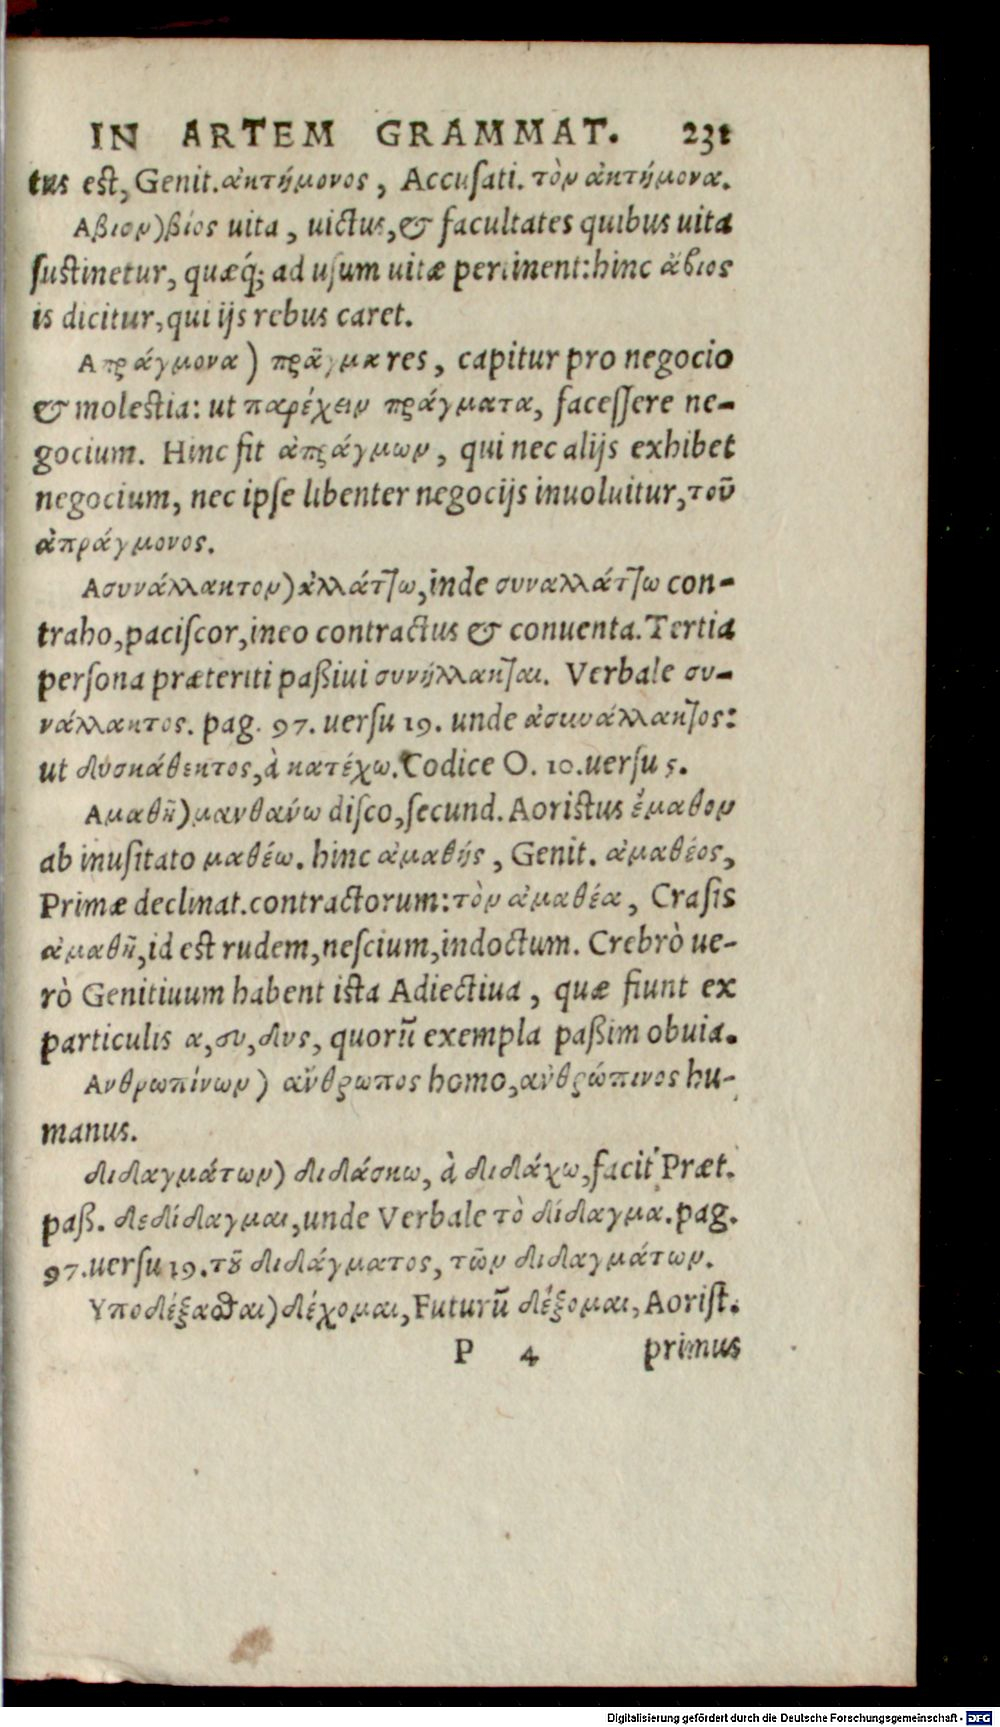 IN ARTEM GRAMMAT. 231
tus est, Genit. ἀκτήμονος, Accusati. τὸν ἀκτήμονα.
Αβιον) βίος uita, uictus, & facultates quibus uita
sustinetur, quæq́; ad usum uitæ pertinent: hinc ἄβιος
is dicitur, qui ijs rebus caret.
Απράγμονα) πρᾶγμα res, capitur pro negocio
& molestia: ut παρέχειν πράγματα, facessere ne-
gocium. Hinc fit ἀπράγμων, qui nec alijs exhibet
negocium, nec ipse libenter negocijs inuoluitur, τοῦ
ἀπράγμονος.
Ασυνάλλακτον) ἀλλάττω, inde συναλλάττω con-
traho, paciscor, ineo contractus & conuenta. Tertia
persona præteriti paßiui συνήλλακται. Verbale συ-
νάλλακτος. pag. 97. uersu 19. unde ἀσυνάλλακτος:
ut δυσκάθεκτος, à κατέχω. Codice O. 10. uersu 5.
Αμαθῆ) μανθαύω disco, secund. Aoristus ἔμαθον
ab inusitato μαθέω. hinc ἀμαθής, Genit. ἀμαθέος,
Primæ declinat. contractorum: τὸν ἀμαθέα, Crasis
ἀμαθῆ, id est rudem, nescium, indoctum. Crebrò ue-
rò Genitiuum habent ista Adiectiua, quæ fiunt ex
particulis α, συ, δυς, quorū exempla paßim obuia.
Ανθρωπίνων) ἄνθρωπος homo, ἀνθρώπινος hu-
manus.
διδαγμάτων) διδάσκω, à διδάχω, facit Præt.
paß. δεδίδαγμαι, unde Verbale τὸ δίδαγμα. pag.
97. uersu 19. τοῦ διδάγματος, τῶν διδαγμάτων.
Υποδέξασθαι) δέχομαι, Futurū δέξομαι, Aorist.
P 4 primus
Digitalisierung gefördert durch die Deutsche Forschungsgemeinschaft - DFG